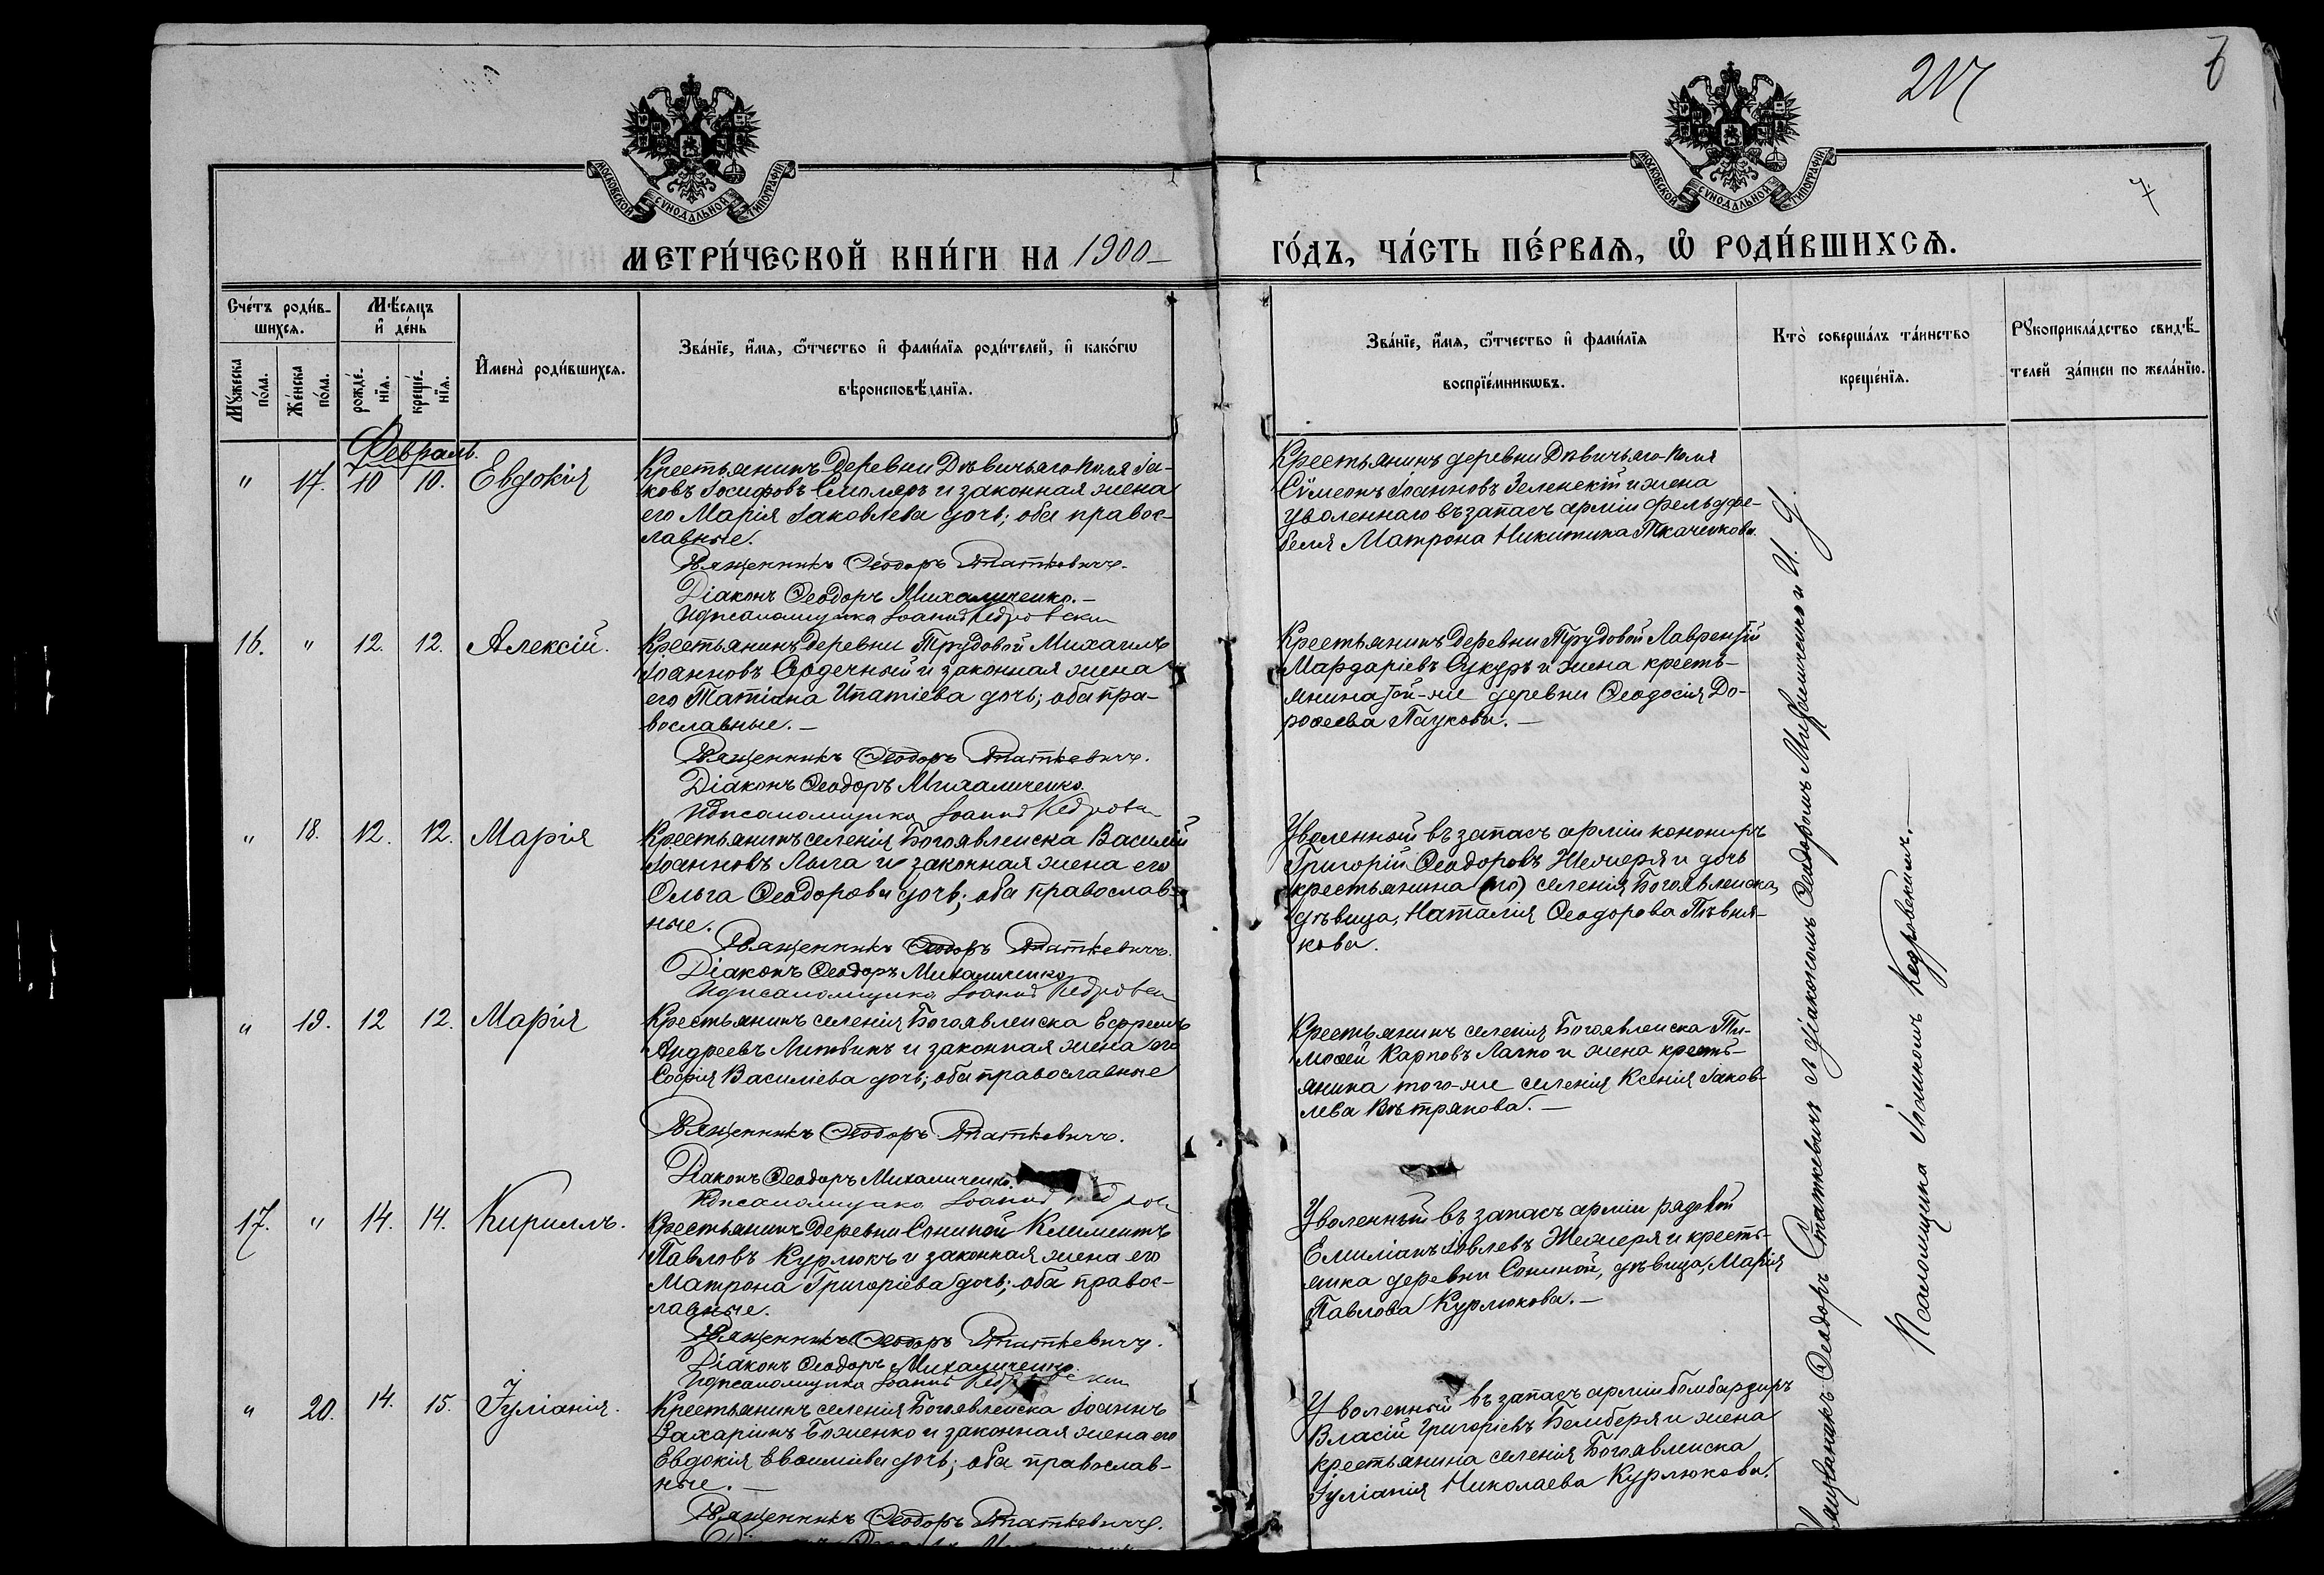 217
7
МОСКОВСКОЙ СУНОДАЛЬНОЙ ТИПОГРАФІИ
МОСКОВСКОЙ СУНОДАЛЬНОЙ ТИПОГРАФІИ
7
МЕТРИ́ЧЕСКОЙ КНИ́ГИ НА 1900
ГО́ДЪ, ЧА́СТЬ ПЕ́РВАѦ, Ѡ РОДИ́ВШИХСѦ.
Сче́тъ роди́в-
шихсѧ.
Мꙋ́жеска
по́ла.
Же́нска
по́ла.
Мѣ́сѧцъ
и҆ де́нь
рожде́-
нїѧ.
креще́-
нїѧ.
И҆мена̀ роди́вшихсѧ.
Зва́нїе, и҆́мѧ, ѻ҆́тчество и҆ фами́лїѧ роди́телей, и҆ како́гѡ
вѣроисповѣ́данїѧ.
Зва́нїе, и҆́мѧ, ѻ҆́тчество и҆ фами́лїѧ
воспрїе́мникѡвъ.
Кто̀ соверша́лъ та́инство
креще́нїѧ.
Рꙋкоприкла́дство свидѣ́-
телей за́писи по жела́нїю.
Февраль.
" 17. 10 10. Евдокія
Крестьянинъ деревни Дѣвичьяго-Поля Іа-
ковъ Іосифовъ Смоляръ и законная жена
его Марія Іаковлева дочь; оба правос-
лавные.
Священникъ Ѳеодоръ Статкевичъ.
Діаконъ Ѳеодоръ Михаличенко.—
Псаломщикъ Іоаннъ Кедровскій
Крестьянинъ деревни Дѣвичьяго-Поля
Сѵмеонъ Іоанновъ Зеленскій и жена
уволеннаго въ запасъ арміи фельдфе-
беля Матрона Никитина Ткачукова.
16. " 12. 12. Алексій.
Крестьянинъ деревни Трудовой Михаилъ
Іоанновъ Сердечный и законная жена
его Татіана Ипатіева дочь; оба пра-
вославные.—
Священникъ Ѳеодоръ Статкевичъ.
Діаконъ Ѳеодоръ Михаличенко.
Псаломщикъ Іоаннъ Кедровск
Крестьянинъ деревни Трудовой Лаврентій
Мардаріевъ Сукуръ и жена кресть-
янина той-же деревни Ѳеодосія До-
роѳеева Паукова.—
" 18. 12. 12. Марія
Крестьянинъ селенія Богоявленска Василій
Іоанновъ Лыга и законная жена его
Ольга Ѳеодорова дочь; оба православ-
ные.
Священникъ Ѳеодоръ Статкевичъ.
Діаконъ Ѳеодоръ Михаличенко
Псаломщикъ Іоаннъ Кедровск
Уволенный въ запасъ арміи канониръ
Григорій Ѳеодоровъ Жежеря и дочь
крестьянина (то) селенія Богоявленска,
дѣвица, Наталія Ѳеодорова Пѣвня-
кова.
" 19. 12 12. Марія
Крестьянинъ селенія Богоявленска Ефремъ
Андреевъ Литвинъ и законная жена его
Софія Василіева дочь; оба православные
Священникъ Ѳеодоръ Статкевичъ.
Діаконъ Ѳеодоръ Михаличенко.
Псаломщикъ Іоаннъ Кедров
Крестьянинъ селенія Богоявленска Ти-
моѳей Карповъ Лачно и жена кресть-
янина того-же селенія Ксенія Іаков-
лева Вѣтрякова.—
17. " 14. 14. Кириллъ.
Крестьянинъ деревни Сониной Климентъ
Павловъ Курлюкъ и законная жена его
Матрона Григоріева дочь; оба правос-
лавные.
Священникъ Ѳеодоръ Статкевичъ.
Діаконъ Ѳеодоръ Михаличенко.
Псаломщикъ Іоаннъ Кедровскій
Уволенный въ запасъ арміи рядовой
Емиліанъ Іовлевъ Жежеря и кресть-
янка деревни Сониной, дѣвица, Марія
Павлова Курлюкова.—
" 20. 14. 15. Іуліанія.
Крестьянинъ селенія Богоявленска Іоаннъ
Захаріинъ Боженко и законная жена его
Евдокія Евѳиміева дочь; оба православ-
ные.—
Священникъ Ѳеодоръ Статкевичъ.
Уволенный въ запасъ арміи бомбардиръ
Власій Григоріевъ Бемберя и жена
крестьянина селенія Богоявленска
Іуліанія Николаева Курлюкова.
Священникъ Ѳеодоръ Статкевичъ съ діакономъ Ѳеодоромъ Михаличенко и И. д.
Псаломщика Іоанномъ Кедровскимъ.—